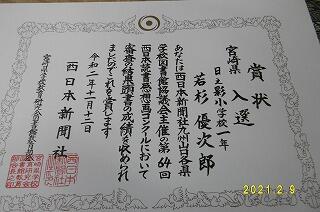 賞状
入選
宮崎県
日之影小学校一年
若杉優次郎
あなたは西日本新聞社九州山口各県
学校図書館協議会主催の第64回
西日本読書感想画コンクールにおいて
審査の結果頭書の成績を収められ
ましたのでこれを賞します
令和二年十二月十二日
西日本新聞社
2021.2.9